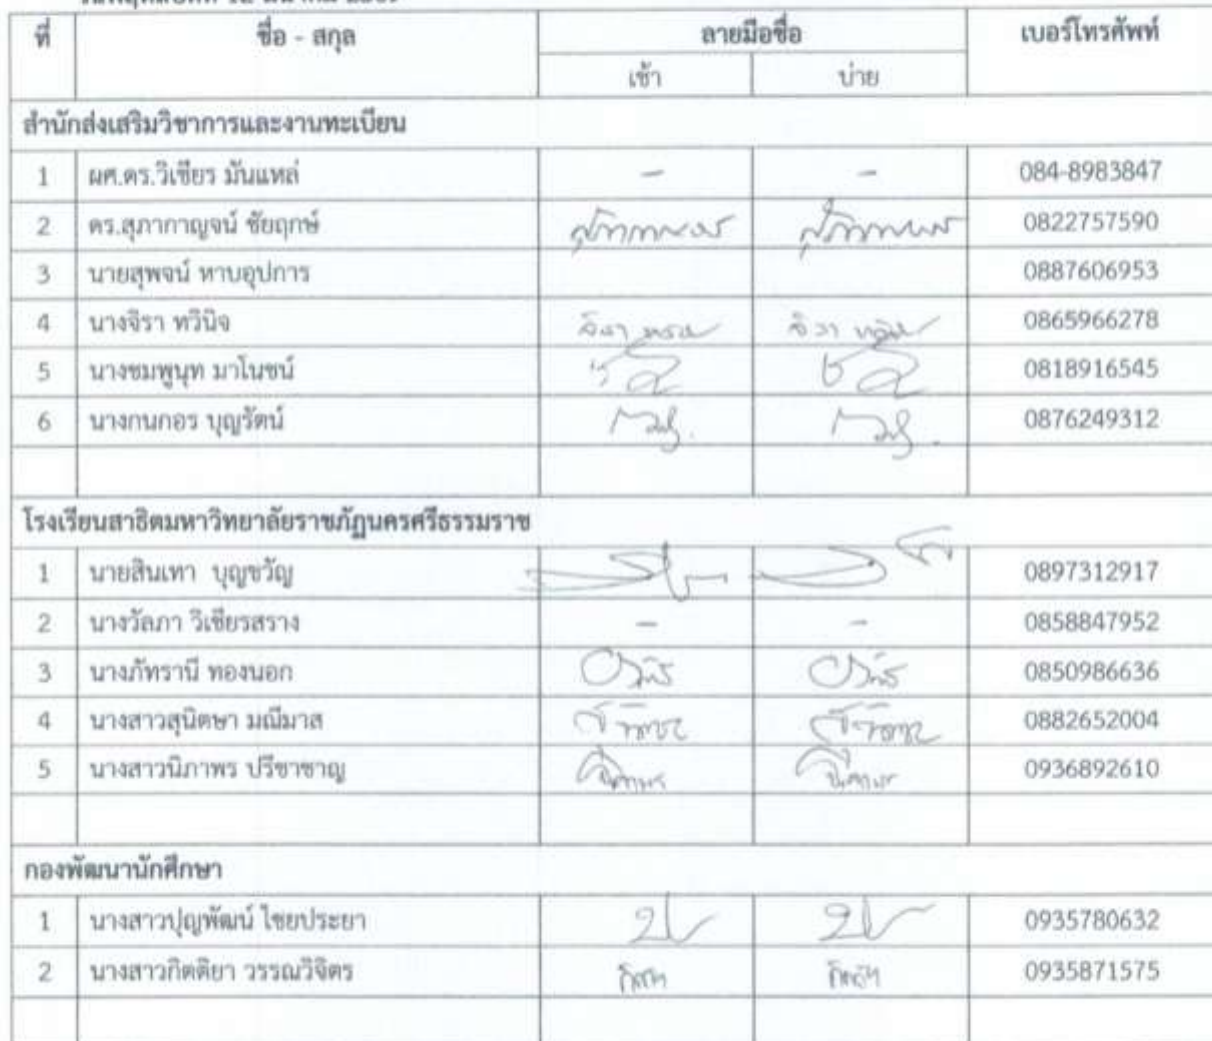 ที่ ชื่อ - สกุล ลายมือชื่อ เบอร์โทรศัพท์
เช้า บ่าย
สำนักส่งเสริมวิชาการและงานทะเบียน
1 ผศ.ดร.วิเชียร มันแหล่ - - 084-8983847
2 ดร.สุภากาญจน์ ชัยฤกษ์ 0822757590
3 นายสุพจน์ หาบอุปการ 0887606953
4 นางจิรา ทวินิจ 0865966278
5 นางชมพูนุท มาโนชน์ 0818916545
6 นางกนกอร บุญรัตน์ 0876249312
โรงเรียนสาธิตมหาวิทยาลัยราชภัฏนครศรีธรรมราช
1 นายสินเทา บุญขวัญ 0897312917
2 นางวัลภา วิเชียรสราง - - 0858847952
3 นางภัทรานี ทองนอก 0850986636
4 นางสาวสุนิตษา มณีมาส 0882652004
5 นางสาวนิภาพร ปรีชาชาญ 0936892610
กองพัฒนานักศึกษา
1 นางสาวปุญพัฒน์ ไชยประยา 0935780632
2 นางสาวกิตติยา วรรณวิจิตร 0935871575